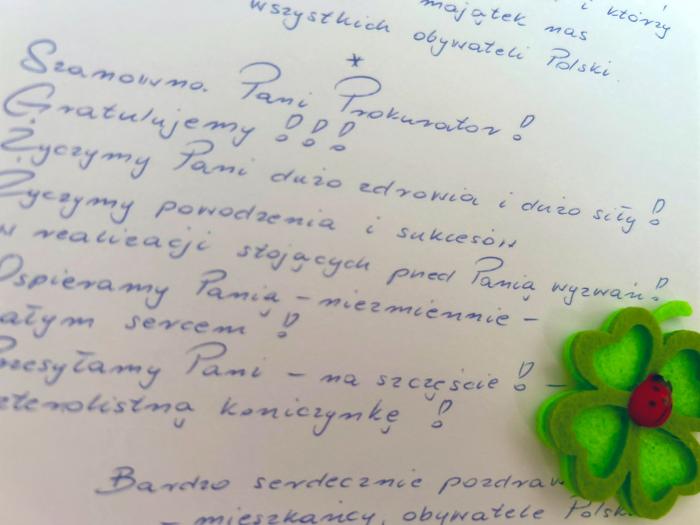 majątek nas i którzy
wszystkich obywateli Polski.
*
Szanowna Pani Prokurator!
Gratulujemy !!!
Życzymy Pani dużo zdrowia i dużo siły!
Życzymy powodzenia i sukcesów
w realizacji stojących przed Panią wyzwań!
Wspieramy Panią - niezmiennie -
całym sercem!
Przesyłamy Pani - na szczęście! -
czterolistną koniczynkę!
Bardzo serdecznie pozdraw
- mieszkańcy, obywatele Polsk